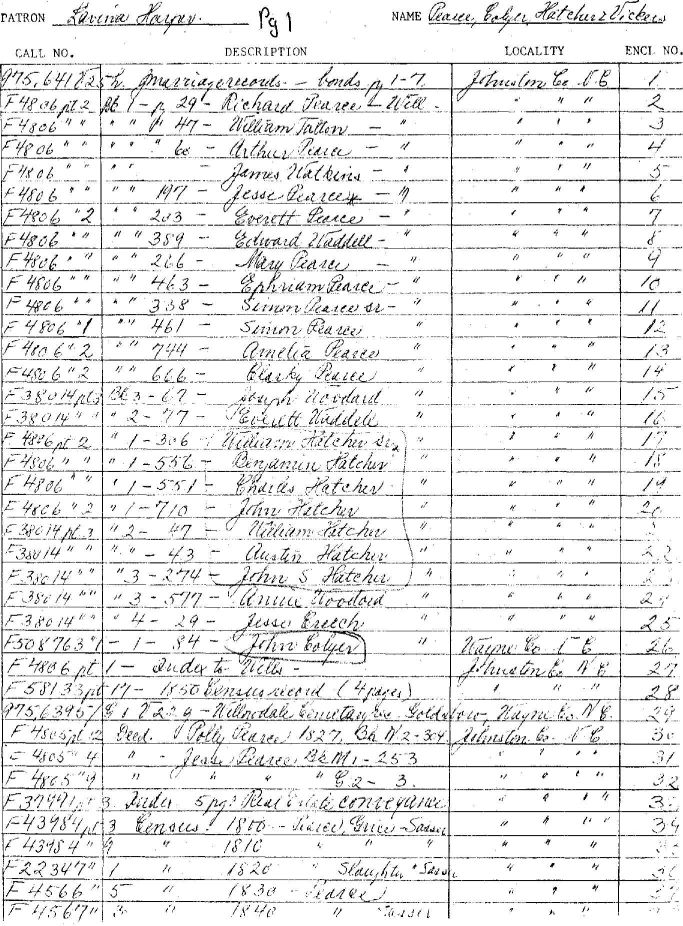 PATRON Lavina Harper Pg 1 NAME Pearce, Colyer, Hatcher & Vickers
CALL NO. DESCRIPTION LOCALITY ENCL NO.
975,641 V25h. marriage records - bonds pg 1-7. Johnston Co N C 1
F4806 pt 2 Bk 1 - p 29 - Richard Pearce - Will - " " " 2
F4806 " " " " p 47 - William Tatton - " " " " 3
F4806 " " " " " 60 - Arthur Pearce - " " " " 4
F4806 " " " " James Watkins - " " " " 5
F4806 " " " " 197 - Jesse Pearce - " " " " 6
F4806 " 2 " " 203 - Everett Pearce - " " " " 7
F4806 " " " " 389 - Edward Waddell - " " " " 8
F4806 " " " " 266 - Mary Pearce - " " " " 9
F4806 " " " " 463 - Ephriam Pearce - " " " " 10
F4806 " " " " 338 - Simon Pearce sr - " " " " 11
F4806 " 1 " " 461 - Simon Pearce " " " " 12
F4806 " 2 " " 744 - Amelia Pearce " " " " 13
F4806 " 2 " " 666 - Clarky Pearce " " " " 14
F38014 pt 3 Bk 3 - 67 - Joseph Woodard " " " " 15
F38014 " " " 2 - 77 - Everett Waddell " " " " 16
F4806 pt 2 " 1 - 306 - William Hatcher Sr. " " " " 17
F4806 " " " 1 - 556 - Benjamin Hatcher " " " " 18
F4806 " " " 1 - 551 - Charles Hatcher " " " " 19
F4806 " 2 " 1 - 710 - John Hatcher " " " " 20
F38014 pt 3 " 2 - 47 - William Hatcher " " " "
F38014 " " " " - 43 - Austin Hatcher " " " " 22
F38014 " " " 3 - 274 - John S Hatcher " " " "
F38014 " " " 3 - 577 - Annie Woodard " " " " 24
F38014 " " " 4 - 29 - Jesse Creech " " " " 25
F508763 " 1 - 1 - 84 - John Colyer " Wayne Co N C 26
F4806 pt 1 - Index to Wills - Johnston Co N C 27
F58133 pt 17 - 1850 Census record (4 pages) " " " 28
975,6395 / G1 V229 - Willowdale Cemetary Goldsboro, Wayne Co N C. 29
F4805 pt 12 Deed. Polly Pearce 1827, Bk N2-304 Johnston Co N C 30
F4805 " 4 " - Jesse Pearce Bk M1 - 253 " " " 31
F4805 " 9 " " " " G.2 - 3 " " " 32
F37991 pt 3 Index 5 pgs Real Estate conveyance " " "
F43984 pt 3 Census: 1800 - Pearce, Grice - Sasser " " " 34
F43984 " 9 " 1810 " " " " " "
F22347 " 1 " 1820 Slaughter " Sasser " " "
F4566 " 5 " 1830 - Pearce " " "
F4567 " 3 " 1840 " Sasser " " "